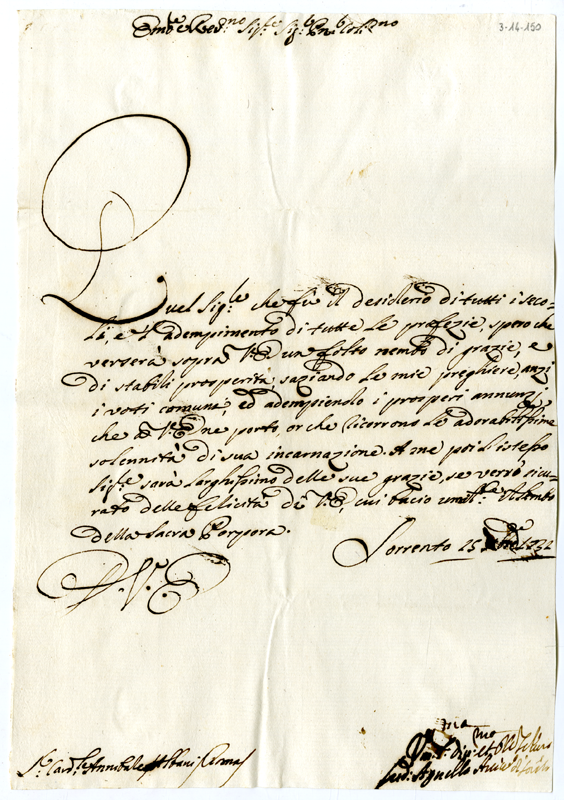 3-14-150
Em.mo e Rev.mo Sig.re Sig.r P.ron Col.mo
Quel Sig.re che fù il desiderio di tutti i seco-
li, e l'adempimento di tutte le profezie, spero che
verserà sopra V.E. un folto nembo di grazie, e
di stabili prosperità, saziando le mie preghiere, anzi
i voti comuni, ed adempiendo i prosperi annunzj
che a V.E. ne porto, or che ricorrono le adorabilissime
solennità di sua incarnazione. A me poi l'istesso
Sig.re sarà larghissimo delle sue grazie, se verrò sicu-
rato delle felicità di V.E., cui bacio umil.te il lembo
della Sacra Porpora.
Sorrento 25
D. V. E.
S.r Card.le Annibale Albani Roma